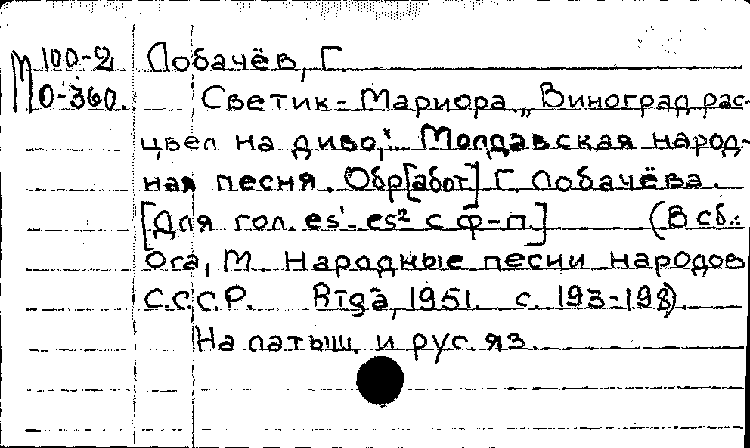 М 100-2 Лобачёв, Г.
О-360. Светик-Мариора „Виноград рас-
цвел на диво,“ Молдавская народ-
ная песня. Обр[абот.] Г. Лобачёва.
[Для гол. es¹-es² с ф-п.] (В сб.:
Ога, М. Народные песни народов
С.С.С.Р. Rīgā, 1951. с. 193-198)
На латыш. и рус. яз.